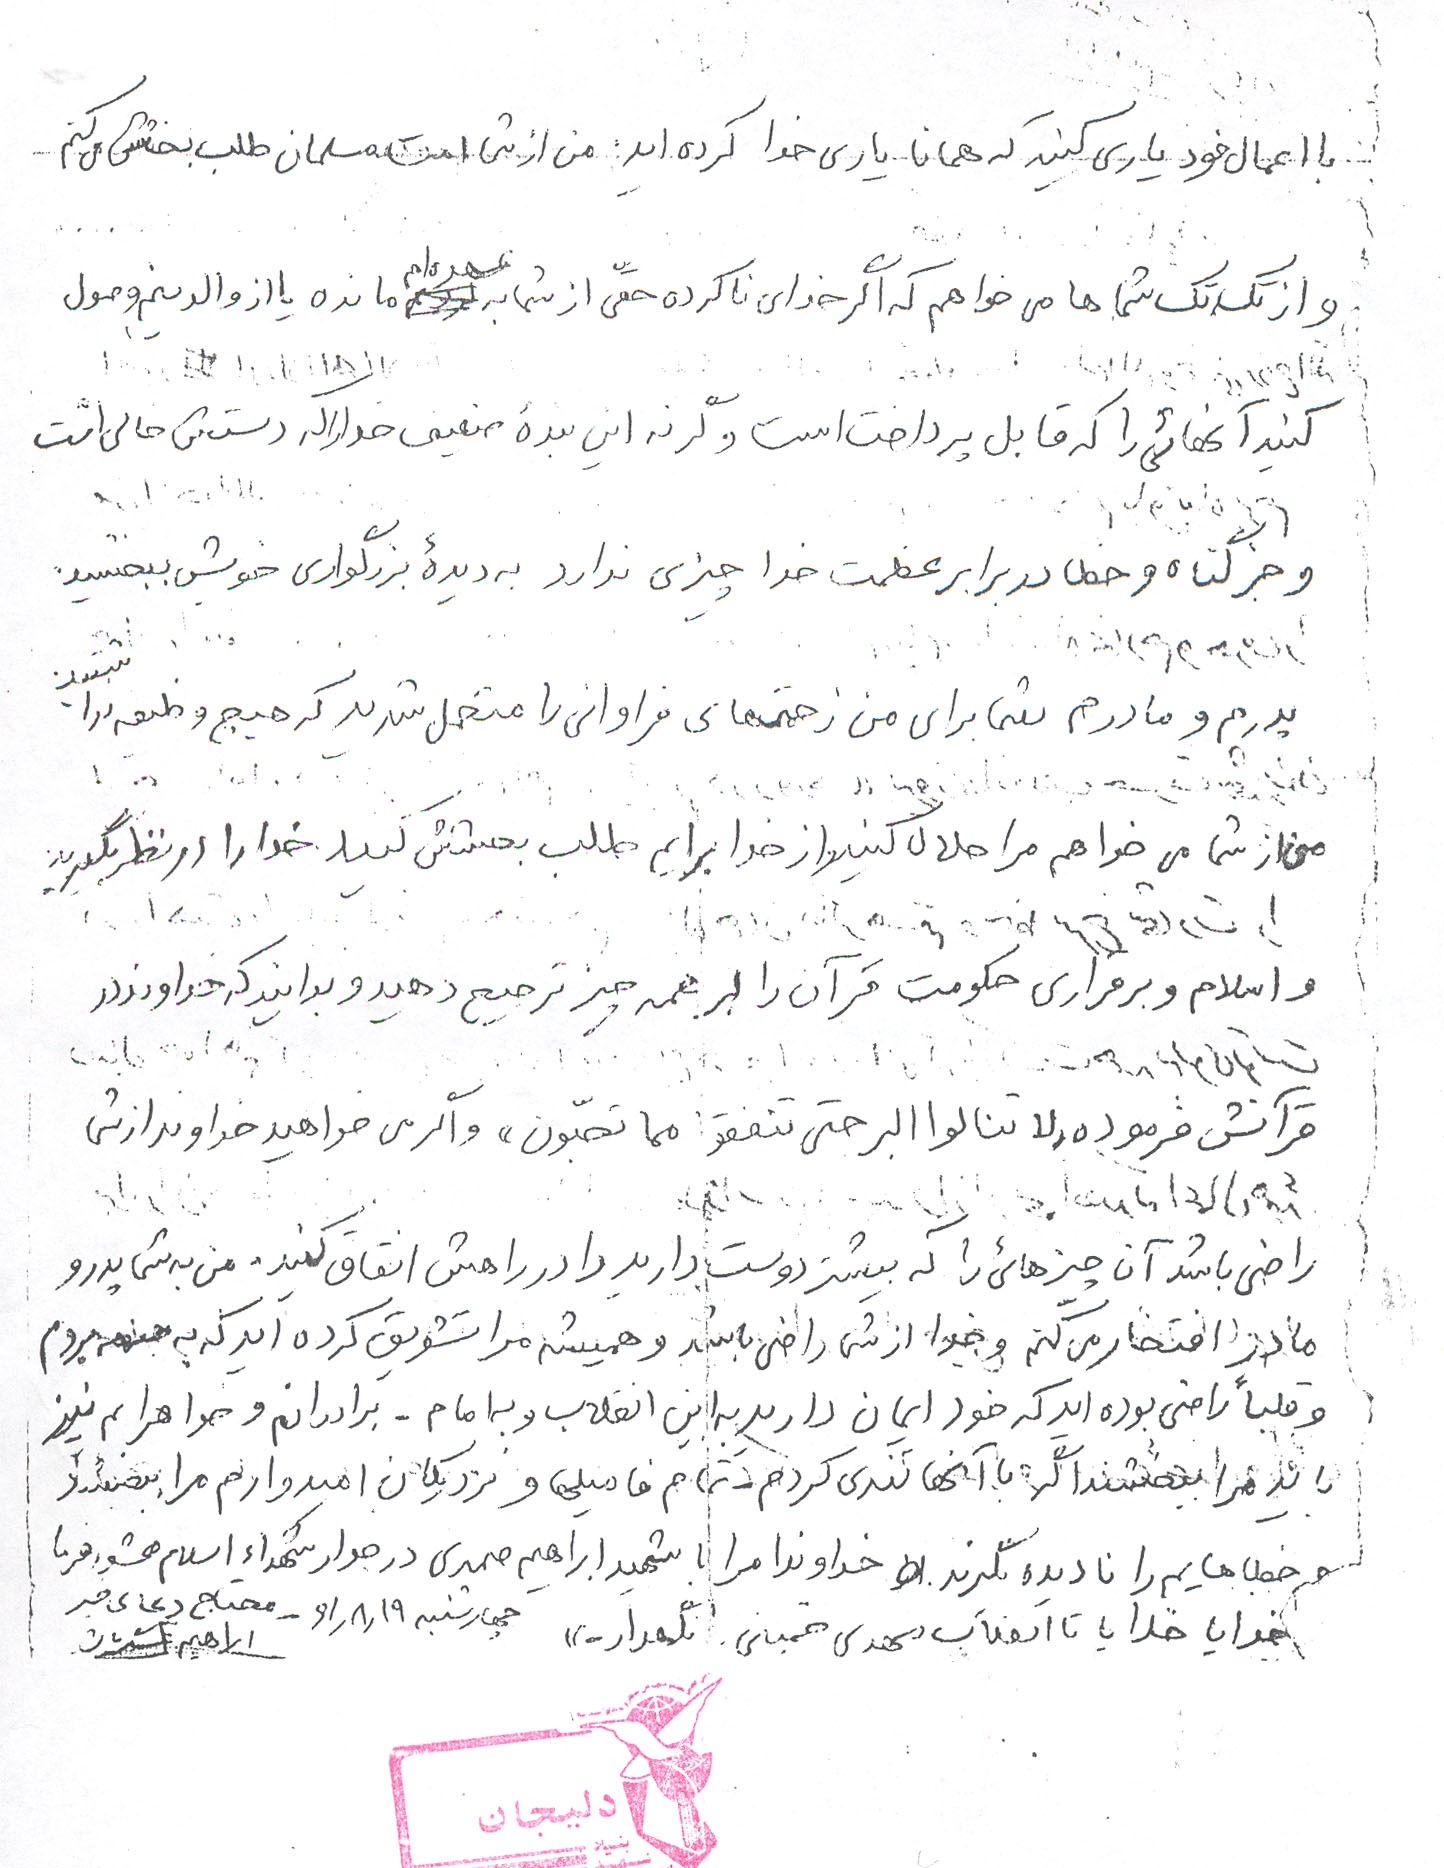 با اعمال خود یاری کنید که همانا یاری خدا کرده اید: من از شما امت مسلمان طلب بخشش می کنم
و از تک تک شما ها می خواهم که اگر خدای ناکرده حقّی از شما به عهده ام مانده یا از والدینم وصول
کنید آنهائی را که قابل پرداخت است و گرنه این بندهٔ ضعیف خدا را که دستش خالی است
و جز گناه و خطا در برابر عظمت خدا چیزی ندارد به دیدهٔ بزرگواری خویش ببخشید.
پدرم و مادرم شما برای من زحمتهای فراوانی را متحمل شدید که هیچ وظیفه نداشتید
من از شما می خواهم مرا حلال کنید و از خدا برایم طلب بخشش کنید. خدا را در نظر بگیرید
و اسلام و برقراری حکومت قرآن را بر همه چیز ترجیح دهید و بدانید که خداوند در
قرآنش فرموده «لا تنالوا البر حتی تنفقوا مما تحبّون» و اگر می خواهید خداوند از شما
راضی باشد آن چیزهائی را که بیشتر دوست دارید را در راهش انفاق کنید. من به شما پدر و
مادرم افتخار می کنم و خدا از شما راضی باشد و همیشه مرا تشویق کرده اید که به جبهه بروم
و قلباً راضی بوده اید که خود ایمان دارید به این انقلاب و به امام - برادرانم و خواهرانم نیز
باید مرا ببخشند اگر با آنها تندی کردم - تمام فامیلها و نزدیکان امیدوارم مرا ببخشند
و خطاهایم را نادیده بگیرند. خداوندا مرا با شهید ابراهیم صمدی در جوار شهداء اسلام محشور فرما
خدایا خدایا تا انقلاب مهدی خمینی را نگهدار -»
چهارشنبه ۶۱٫۸٫۱۹ - محتاج دعای خیر
ابراهیم
دلیجان
بنیاد